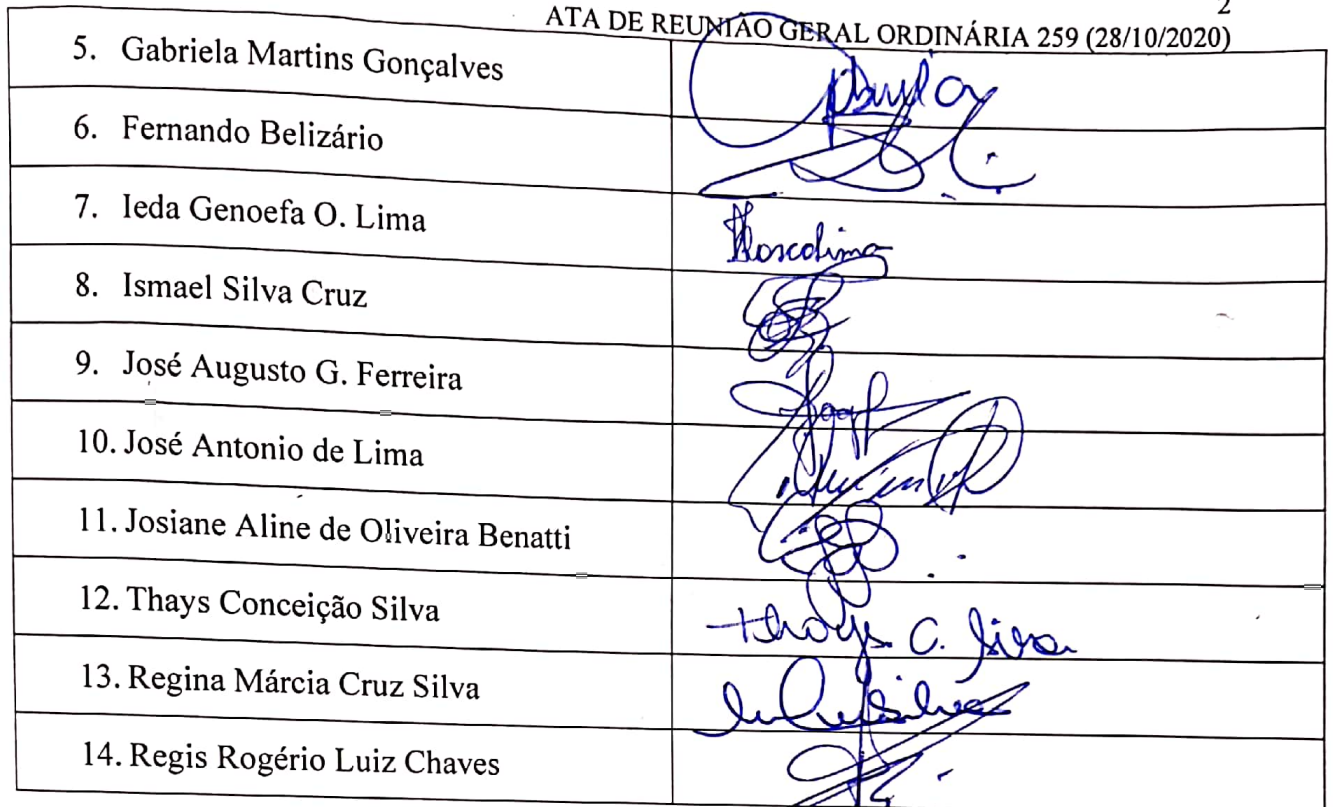 2
ATA DE REUNIÃO GERAL ORDINÁRIA 259 (28/10/2020)
5. Gabriela Martins Gonçalves
6. Fernando Belizário
7. Ieda Genoefa O. Lima
8. Ismael Silva Cruz
9. José Augusto G. Ferreira
10. José Antonio de Lima
11. Josiane Aline de Oliveira Benatti
12. Thays Conceição Silva Thays C. Silva
13. Regina Márcia Cruz Silva
14. Regis Rogério Luiz Chaves